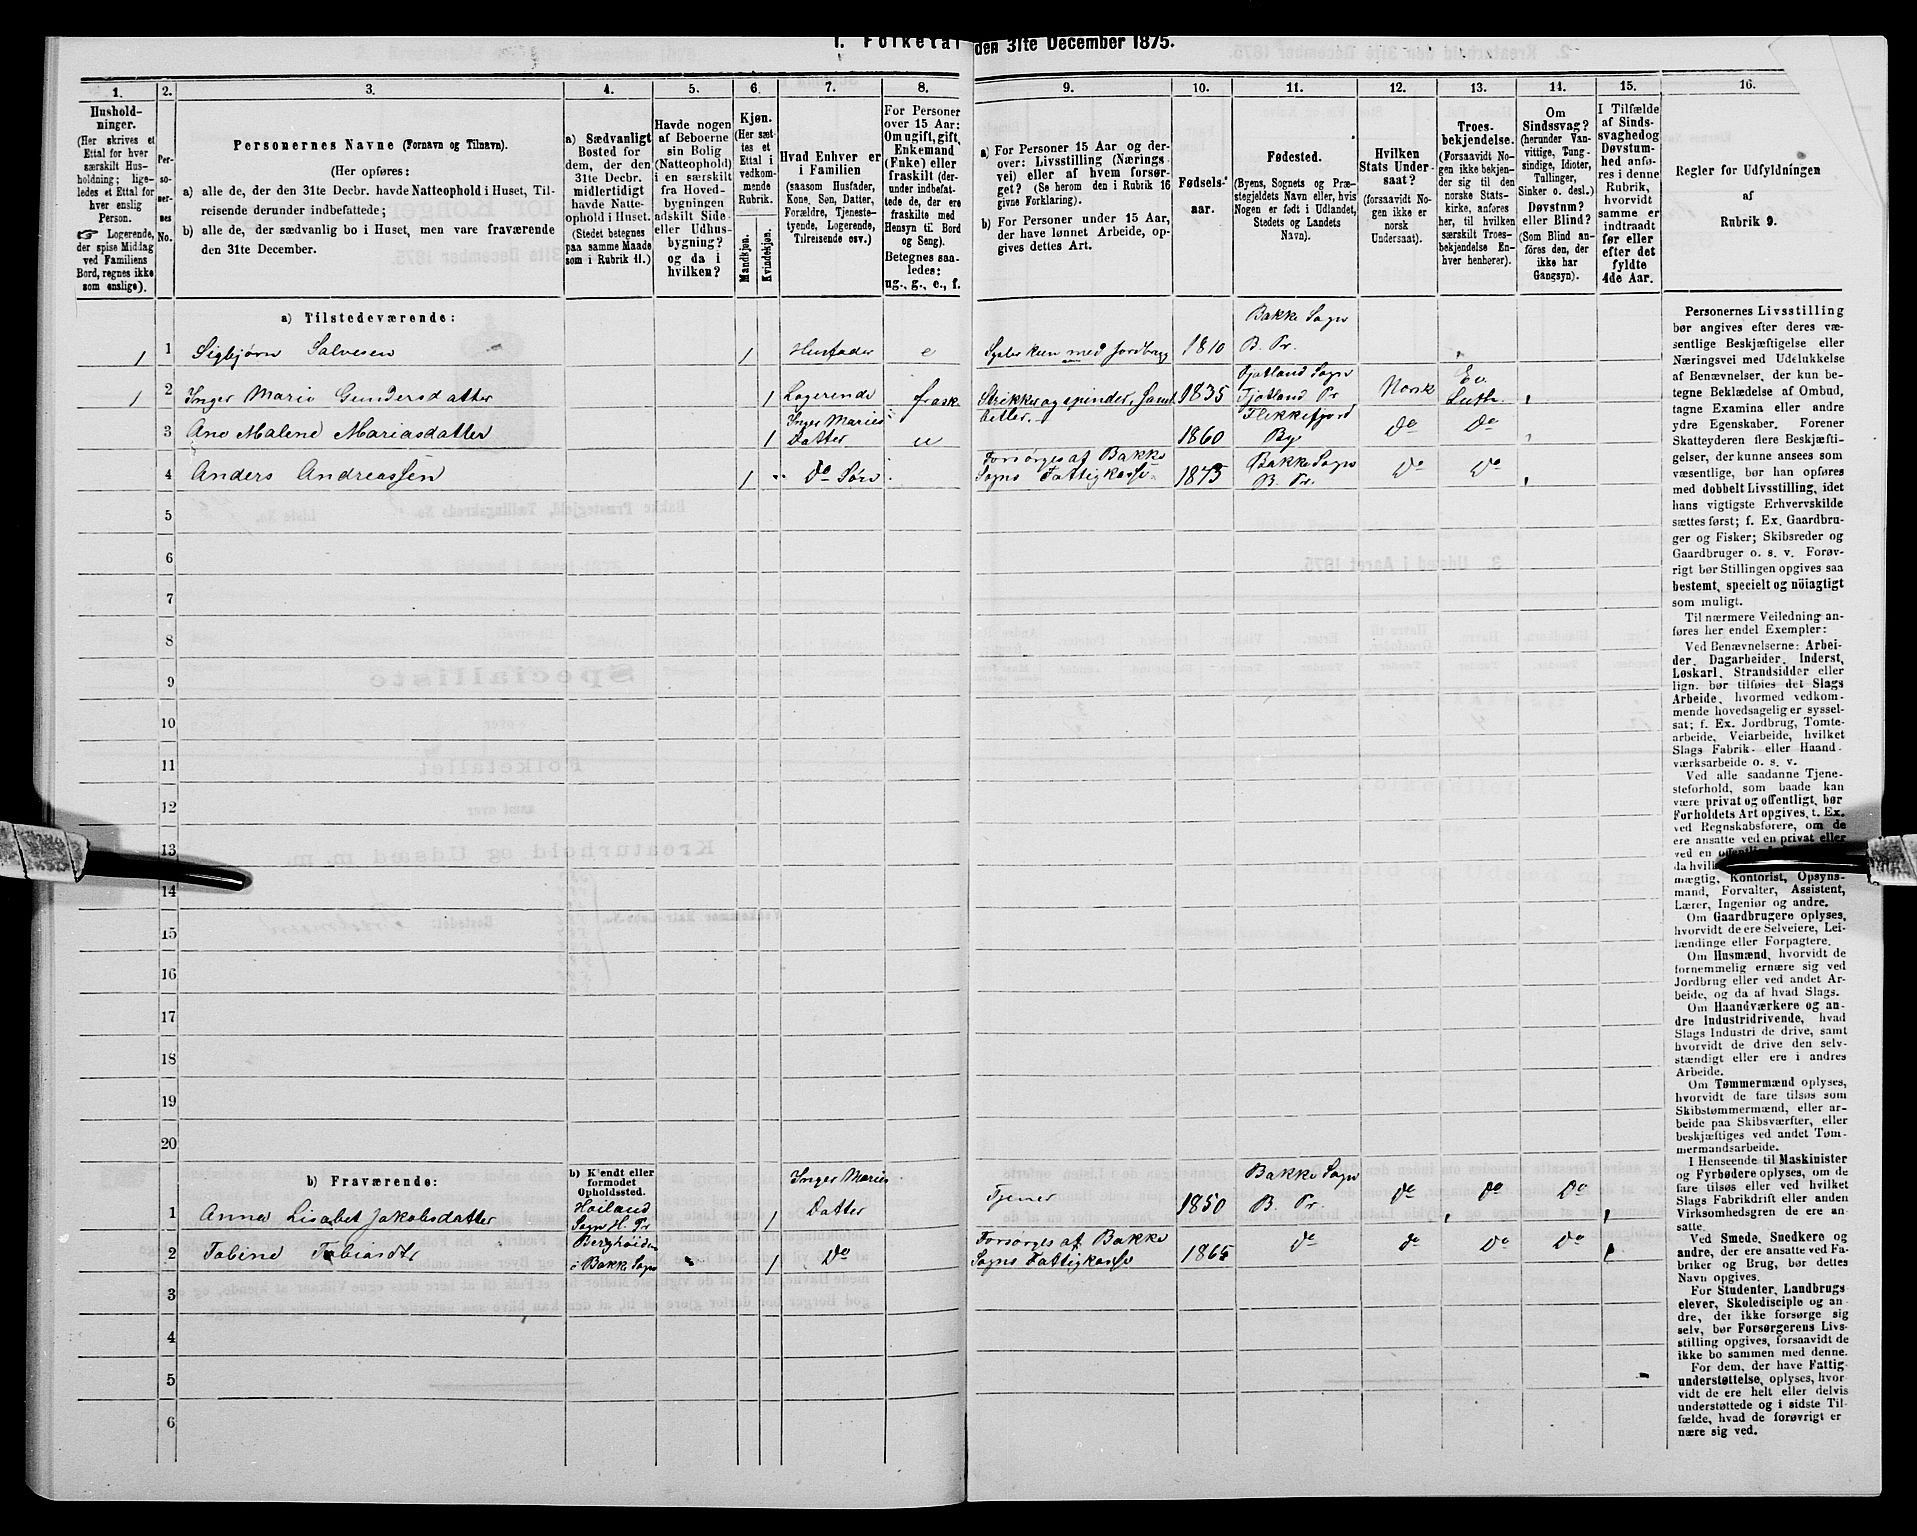 1. Folketal den 31te December 1875.
1.
2.
3.
4.
5.
6.
7.
8.
9.
10.
11.
12.
13.
14.
15.
16.
Hushold-
ninger.
(Her skrives et
Ettal for hver
særskilt Hus
holdning; lige-
ledes et Ettal for
hver enslig
Person.
☞ Logerende,
der spise Middag
ved Familiens
Bord, regnes ikke
som enslige).
Per-
so-
ner-
nes
No.
Personernes Navne (Fornavn og Tilnavn).
(Her opføres:
a) alle de, der den 31te Decbr. havde Natteophold i Huset, Til-
reisende derunder indbefattede;
b) alle de, der sædvanlig bo i Huset, men vare fraværende
den 31te December.
a) Sædvanligt
Bosted for
dem, der den
31te Decbr.
midlertidigt
havde Natte-
ophold i Huset.
(Stedet betegnes
paa samme Maade
som i Rubrik 11.)
Havde nogen
af Beboerne
sin Bolig
(Natteophold)
i en særskilt
fra Hoved-
bygningen
adskilt Side-
eller Udhus-
bygning?
og da i
hvilken?
Kjøn.
(Her sæt-
tes et
Ettal i
vedkom-
mende
Rubrik.
Mandkjøn.
Kvindekjøn.
Hvad Enhver er
i Familien
(saasom Husfader,
Kone, Søn, Datter,
Forældre, Tjeneste-
tyende, Logerende,
Tilreisende osv.)
For Personer
over 15 Aar:
Om ugift, gift,
Enkemand
(Enke) eller
fraskilt (der-
under indbefat-
tede de, der ere
fraskilte med
Hensyn til Bord
og Seng).
Betegnes saa-
ledes:
ug., g., e., f.
a) For Personer 15 Aar og der-
over: Livsstilling (Nærings
vei) eller af hvem forsør-
get? (Se herom den i Rubrik 16
givne Forklaring).
b) For Personer under 15 Aar,
der have lønnet Arbeide, op-
gives dettes Art.
Fødsels-
aar.
Fødested.
(Byens, Sognets og Præ-
stegjeldets Navn eller, hvis
Nogen er født i Udlandet,
Stedets og Landets
Navn).
Hvilken
Stats Under-
saat?
(forsaavidt No-
gen ikke er
norsk
Undersaat).
Troes-
bekjendelse.
(Forsaavidt No-
gen ikke bekjen-
der sig til den
norske Stats-
kirke, anføres
her, til hvilken
særskilt Troes-
bekjendelse En-
hver henhører).
Om
Sindssvag?
(herunder Van-
vittige, Tung-
sindige, Idioter,
Tullinger,
Sinker o. desl.)
Døvstum?
eller Blind?
(Som Blind an-
føres den, der
ikke har
Gangsyn).
I Tilfælde
af Sinds-
svaghed og
Døvstum-
hed anfø-
res i denne
Rubrik,
hvorvidt
samme er
indtraadt
før eller
efter det
fyldte
4de Aar.
Regler for Udfyldningen
af
Rubrik 9.
a) Tilstedeværende:
1 1 Sigbjørn Salvesen 1 Husfader e med Jordbrug 1810 Bakke Sogn
B. Pr.
1 2 Inger Marie Gundersdatter 1 Logerende frask Strikker og spinder, samt
betler. 1835 Fjotland Sogn
Fjotland Pr. Norsk Ev.
Luth.
3 Ane Malene Mariasdatter 1 Inger Maries
Datter u 1860 Flekkefjord
By Do Do
4 Anders Andreassen 1 Do Søn Forsørges af Bakke
Sogns Fattigkasse 1875 Bakke Sogn
B. Pr. Do Do
5
6
7
8
9
10
11
12
13
14
15
16
17
18
19
20
b) Fraværende:
b) Kjendt eller
formodet
Opholdssted.
1 Anna Lisabet Jakobsdatter Høiland
Sogn H. Pr 1 Inger Maries
Datter Tjener 1850 Bakke Sogn
B. Pr. Do Do Do
2 Tobine Tobiasdtr i Bakke Sogn 1 Do Forsørges af Bakke
Sogns Fattigkasse Do Do Do Do
3
4
5
6
Personernes Livsstilling
bør angives efter deres væ-
sentlige Beskjæftigelse eller
Næringsvei med Udelukkelse
af Benævnelser, der kun be-
tegne Beklædelse af Ombud,
tagne Examina eller andre
ydre Egenskaber. Forener
Skatteyderen flere Beskjæfti-
gelser, der kunne ansees som
væsentlige, bør han opføres
med dobbelt Livsstilling, idet
hans vigtigste Erhvervskilde
sættes først; f. Ex. Gaardbru-
ger og Fisker; Skibsreder og
Gaardbruger o. s. v. Forøv-
rigt bør Stillingen opgives saa
bestemt, specielt og nöiagtigt
som muligt.
Til nærmere Veiledning an-
føres her endel Exempler:
Ved Benævnelserne: Arbei-
der, Dagarbeider, Inderst,
Løskarl, Strandsidder eller
lign. bør tilføies det Slags
Arbeide, hvormed vedkom-
mende hovedsagelig er syssel-
sat; f. Ex. Jordbrug, Tomte-
arbeide, Veiarbeide, hvilket
Slags Fabrik- eller Haand-
værksarbeide o. s. v.
Ved alle saadanne Tjene-
steforhold, som baade kan
være privat og offentligt, bør
Forholdets Art opgives, t. Ex.
ved Regnskabsførere, om de
ere ansatte ved en privat eller
ved en
da hvil
mægtig, Kontorist, Opsyns-
mand, Forvalter, Assistent,
Lærer, Ingeniør og andre.
Om Gaardbrugere oplyses,
hvorvidt de ere Selveiere, Lei-
lændinge eller Forpagtere.
Om Husmænd, hvorvidt de
fornemmelig ernære sig ved
Jordbrug eller ved andet Ar-
beide, og da af hvad Slags.
Om Haandværkere og an-
dre Industridrivende, hvad
Slags Industri de drive, samt
hvorvidt de drive den selv-
stændigt eller ere i andres
Arbeide.
Om Tømmermænd oplyses,
hvorvidt de fare tilsøs som
Skibstømmermænd, eller ar-
beide paa Skibsværfter, eller
beskjæftiges ved andet Tøm-
mermandsarbeide.
I Henseende til Maskinister
og Fyrbødere oplyses, om de
fare tilsøs eller ved hvilket
Slags Fabrikdrift eller anden
Virksomhedsgren de ere an-
satte.
Ved Smede, Snedkere og
andre, der ere ansatte ved Fa-
briker og Brug, bør dettes
Navn opgives.
For Studenter, Landbrugs
elever, Skoledisciple og an-
dre, der ikke forsørge sig
selv, bør Forsørgerens Livs-
stilling opgives, forsaavidt de
ikke bo sammen med denne.
For dem, der have Fattig-
understøttelse, oplyses, hvor-
vidt de ere helt eller delvis
understøttede og i sidste Til-
fælde, hvad de forøvrigt er
nære sig ved.